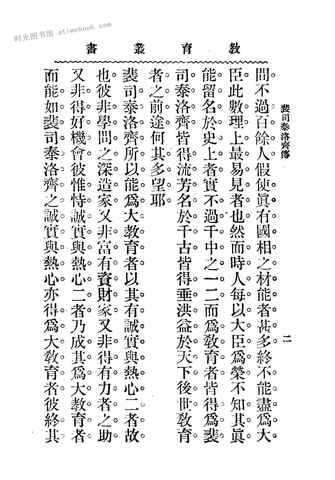 时光图书馆 atimebook.com
教育叢書
裴司泰洛齊傳
二
間。不過百餘人。假使眞有國相之材能者甚多。終不能盡爲大
臣。此數理上最易見者也。然而時人每以大臣爲榮。不知其眞
能留名於史上者。實不過千中之一二。而爲教育者。皆得爲裴
司泰洛齊。皆得流芳名於千古。皆得垂洪益於天下後世。教育
者之前途。何其多望耶。
裴司泰洛齊所以能爲大教育者。以其有誠實與熱心二者故
也。彼非學問之深造家。又非富有資財家。又非得有力者之助。
又非得好機會。彼惟恃誠實與熱心二者。乃成其爲大教育者。
而能如裴司泰洛齊之誠實與熱心。亦得爲大教育者。彼終其